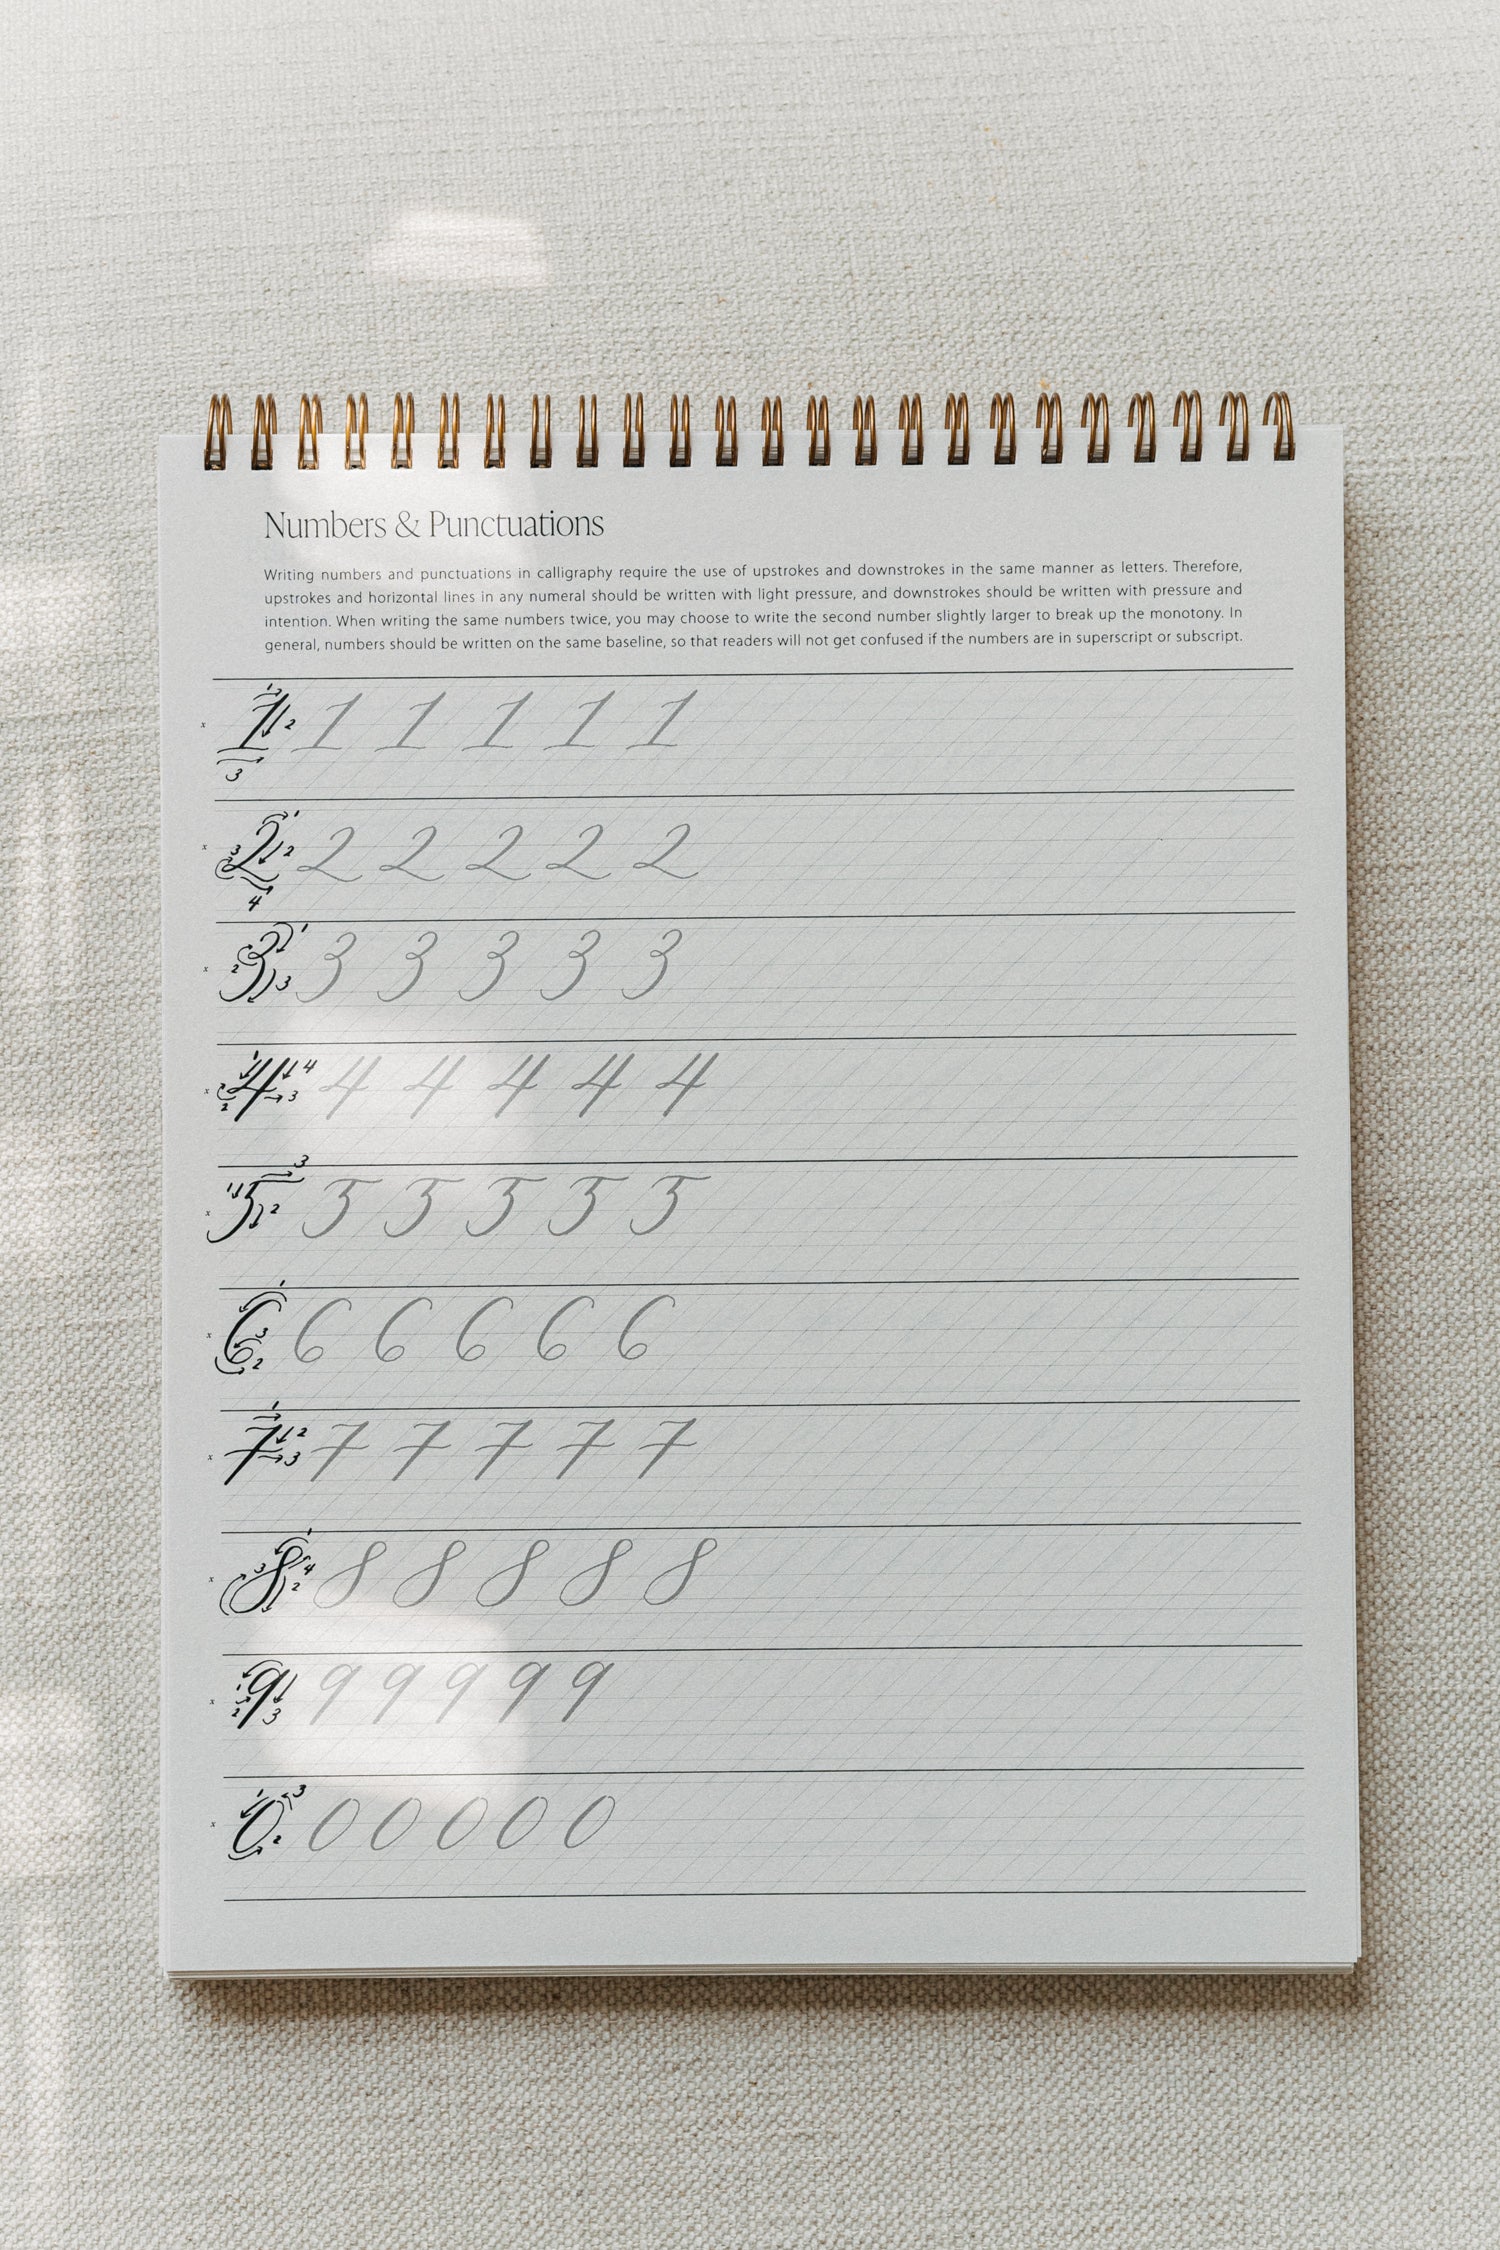 Numbers & Punctuations
Writing numbers and punctuations in calligraphy require the use of upstrokes and downstrokes in the same manner as letters. Therefore,
upstrokes and horizontal lines in any numeral should be written with light pressure, and downstrokes should be written with pressure and
intention. When writing the same numbers twice, you may choose to write the second number slightly larger to break up the monotony. In
general, numbers should be written on the same baseline, so that readers will not get confused if the numbers are in superscript or subscript.
x 1 1 2 3 1 1 1 1 1
x 2 1 2 3 4 2 2 2 2 2
x 3 1 2 3 3 3 3 3 3
x 4 1 2 3 4 4 4 4 4 4
x 5 1 2 3 5 5 5 5 5
x 6 1 2 3 6 6 6 6 6
x 7 1 2 3 7 7 7 7 7
x 8 1 2 3 4 8 8 8 8 8
x 9 1 2 3 9 9 9 9 9
x 0 1 2 3 0 0 0 0 0